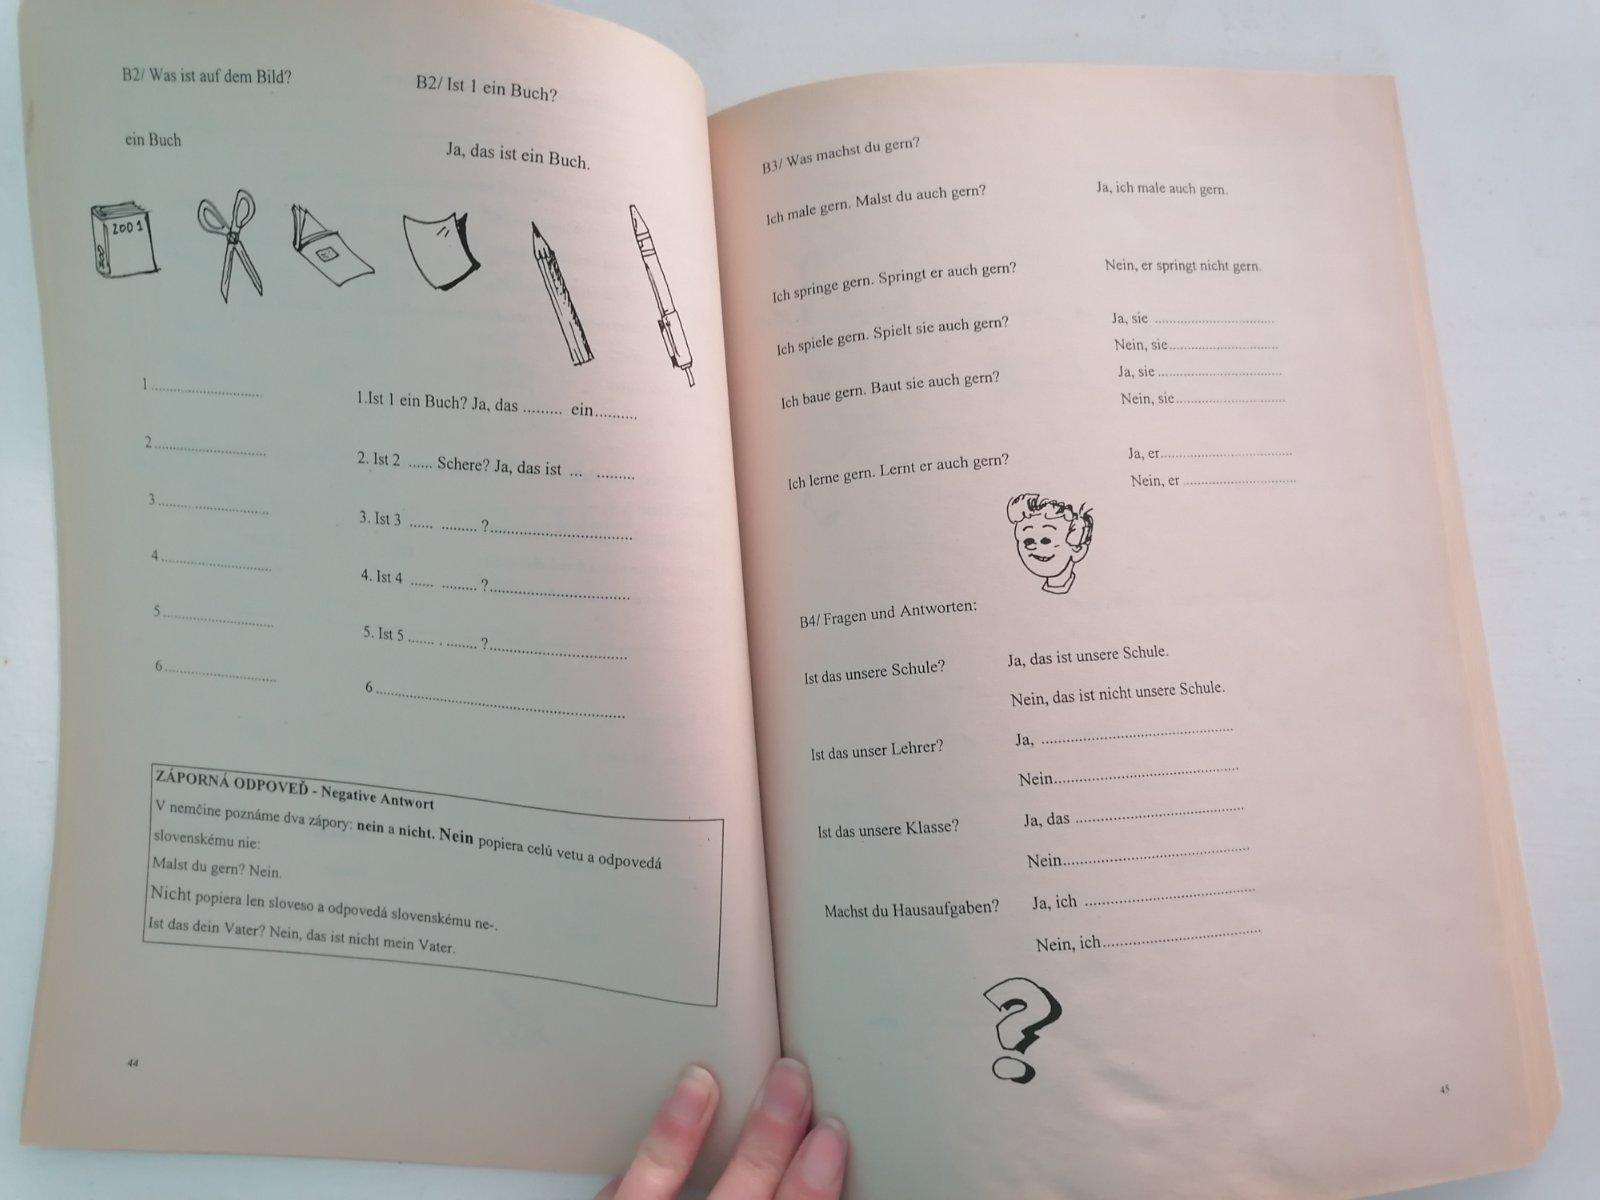 B2/ Was ist auf dem Bild?
B2/ Ist 1 ein Buch?
ein Buch
Ja, das ist ein Buch.
2001
1..............................
1.Ist 1 ein Buch? Ja, das ......... ein..........
2..............................
2. Ist 2 ...... Schere? Ja, das ist ... .........
3..............................
3. Ist 3 ...... ......... ?..................................
4..............................
4. Ist 4 ...... ......... ?..................................
5..............................
5. Ist 5 ....... . ........ ?.................................
6..............................
6............................................................
ZÁPORNÁ ODPOVEĎ - Negative Antwort
V nemčine poznáme dva zápory: nein a nicht. Nein popiera celú vetu a odpovedá
slovenskému nie:
Malst du gern? Nein.
Nicht popiera len sloveso a odpovedá slovenskému ne-.
Ist das dein Vater? Nein, das ist nicht mein Vater.
44
B3/ Was machst du gern?
Ich male gern. Malst du auch gern?
Ja, ich male auch gern.
Ich springe gern. Springt er auch gern?
Nein, er springt nicht gern.
Ich spiele gern. Spielt sie auch gern?
Ja, sie .................................
Nein, sie..............................
Ich baue gern. Baut sie auch gern?
Ja, sie .................................
Nein, sie..............................
Ich lerne gern. Lernt er auch gern?
Ja, er....................................
Nein, er ...............................
B4/ Fragen und Antworten:
Ist das unsere Schule?
Ja, das ist unsere Schule.
Nein, das ist nicht unsere Schule.
Ist das unser Lehrer?
Ja, ..............................................
Nein............................................
Ist das unsere Klasse?
Ja, das ........................................
Nein............................................
Machst du Hausaufgaben?
Ja, ich ........................................
Nein, ich.....................................
?
45